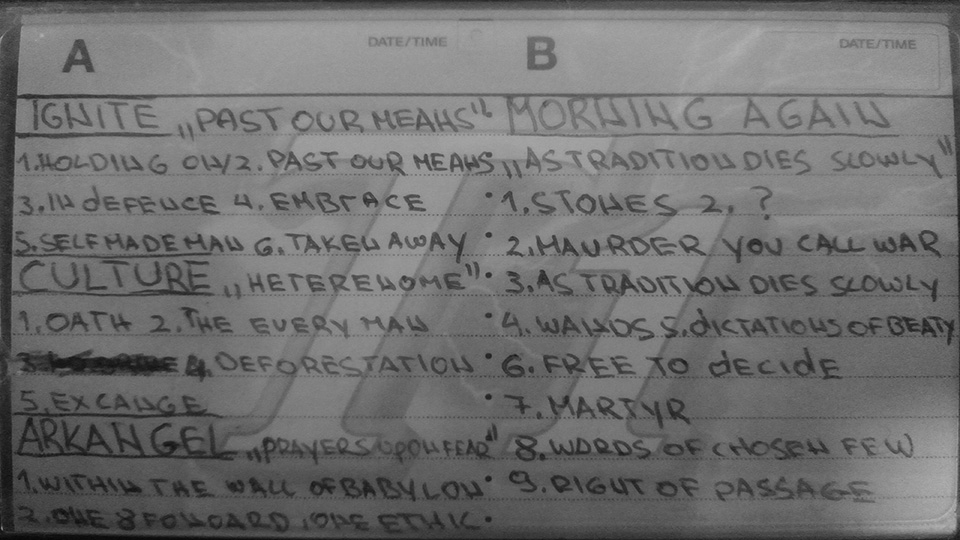 A DATE/TIME
IGNITE „PAST OUR MEANS"
1.HOLDING ON/2. PAST OUR MEANS
3.IN dEFENCE 4. EMBRACE
5.SELFMADEMAN 6.TAKEN AWAY
CULTURE „HETEREHOME"
1.OATH 2.THE EVERY MAN
4.DEFORESTATION
5.EXCANGE
ARKANGEL „PRAYERS UPON FEAR"
1.WITHIN THE WALL OF BABYLON
2.ONE 8 FOWOARD ETHIC
B DATE/TIME
MORNING AGAIN
„AS TRADITION DIES SLOWLY"
1.STONES 2. ?
2.MAURDER YOU CALL WAR
3.AS TRADITION DIES SLOWLY
4. 5.dICTATIONS OF BEATY
6.FREE TO dECIDE
7.MARTYR
8.WORDS OF CHOSEN FEW
9.RIGHT OF PASSAGE